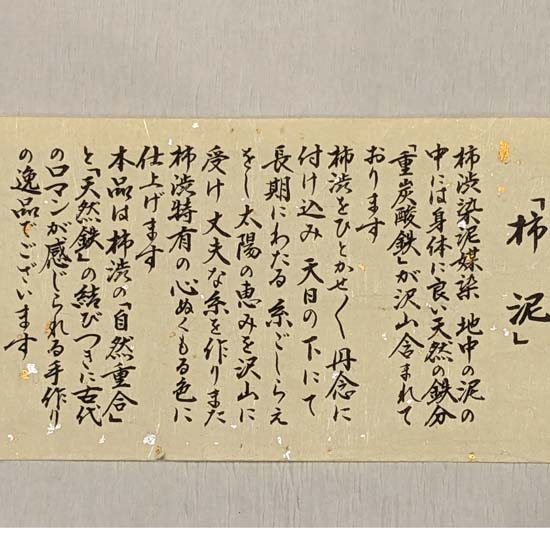 「柿泥」
柿渋染泥媒染 地中の泥の
中には身体に良い天然の鉄分
「重炭酸鉄」が沢山含まれて
おります
柿渋をひとかせ〳〵丹念に
付け込み 天日の下にて
長期にわたる 糸ごしらえ
をし 太陽の恵みを沢山に
受け 丈夫な糸を作りまた
柿渋特有の心ぬくもる色に
仕上げます
本品は柿渋の「自然重合」
と「天然鉄」の結びつきに古代
のロマンが感じられる手作り
の逸品でございます